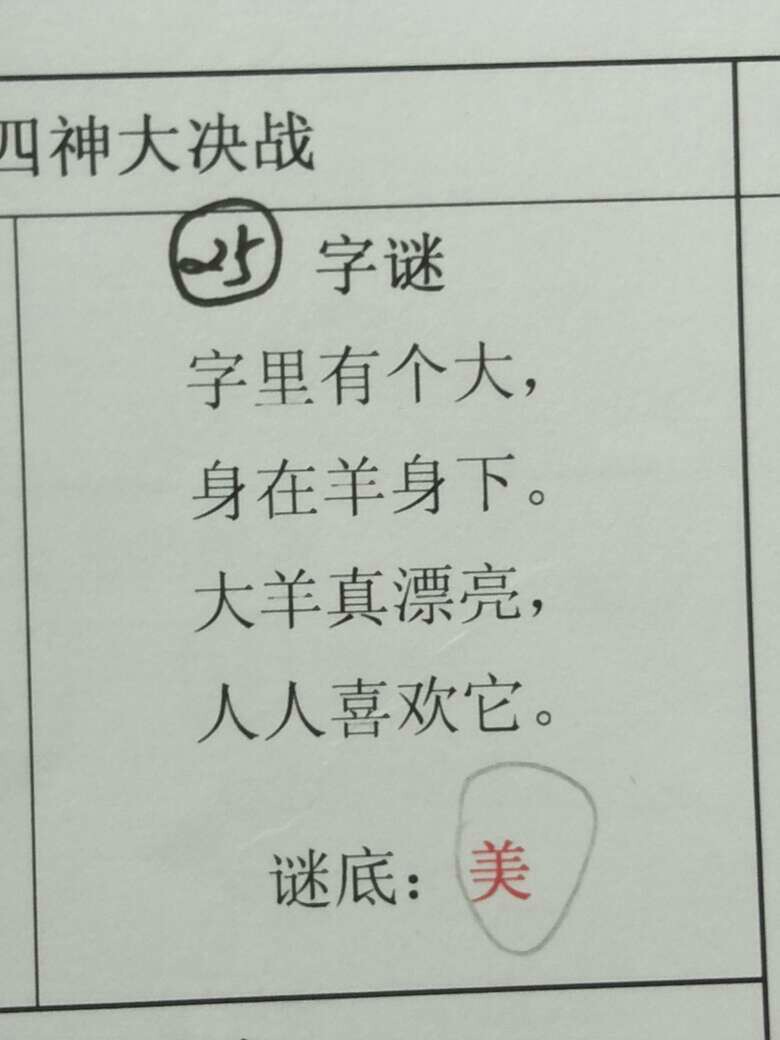 四神大决战
25 字谜
字里有个大，
身在羊身下。
大羊真漂亮，
人人喜欢它。
谜底：美